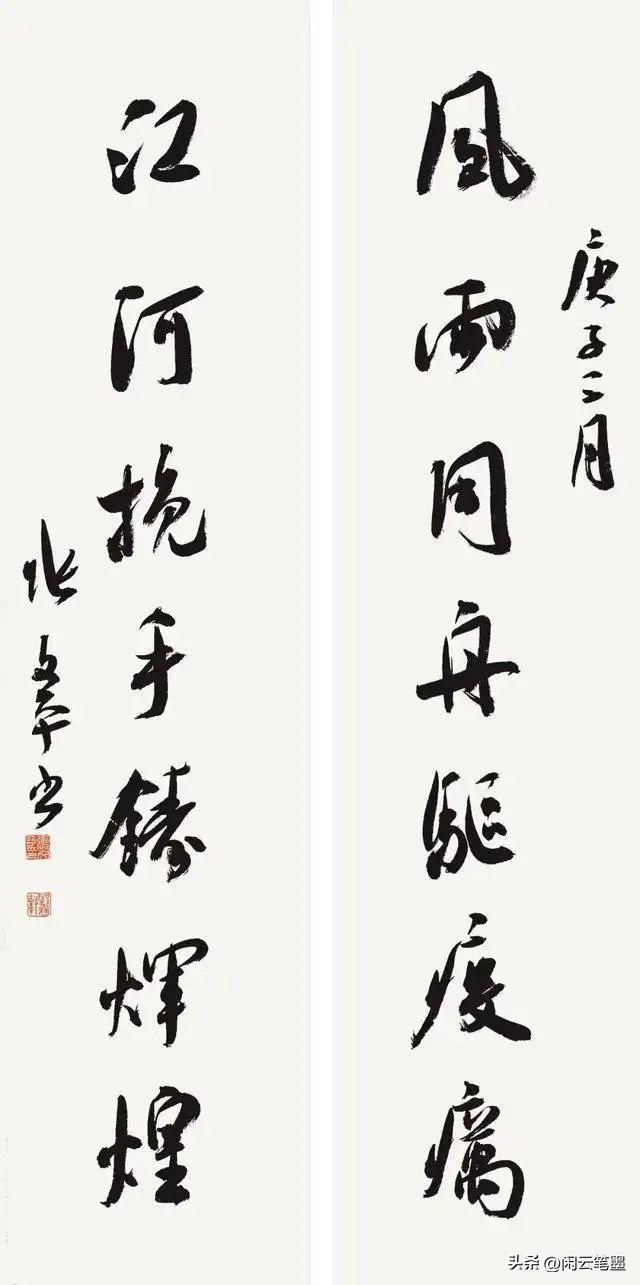 庚子二月
風雨同舟驅疫癘
江河挽手鑄煇煌
张文书
头条 @闲云笔墨